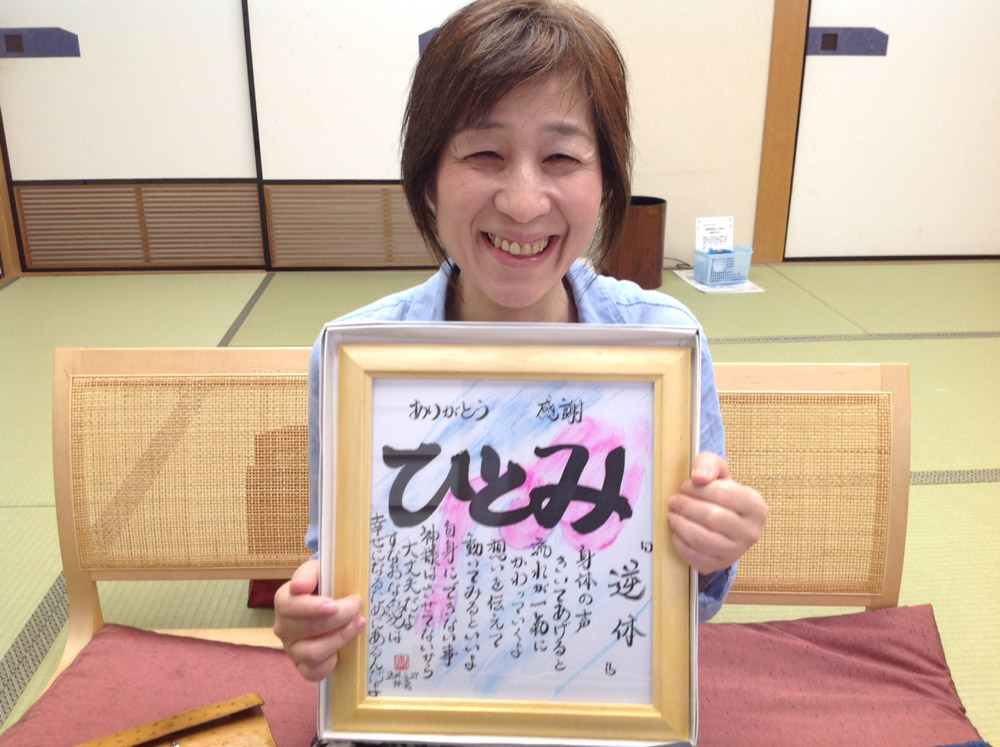 ありがとう 感謝
ひとみ
『逆休』
身体の声
きいてあげると
流れが一気に
かわっていくよ
想いを伝えて
動いてみるといいよ
自身にできない事
神様はさせてないから
大丈夫だよ
すなおな愛は
幸せになるためにあるんだよ